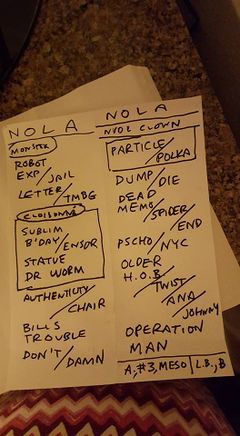 NOLA
MONSTER
ROBOT
EXP/JAIL
LETTER/TMBG
CLOISONNE
SUBLIM
B'DAY/ENSOR
STATUE
DR WORM
AUTHENTICITY/CHAIR
BILLS
TROUBLE
DON'T/DAMN
NOLA
CLOWN
PARTICLE/POLKA
DUMP/DIE
DEAD
MEMO/SPIDER/END
PSCHO/NYC
OLDER
H.O.B/TWIST/ANA/JOHNNY
OPERATION
MAN
A, #3, MESO/L.B., B